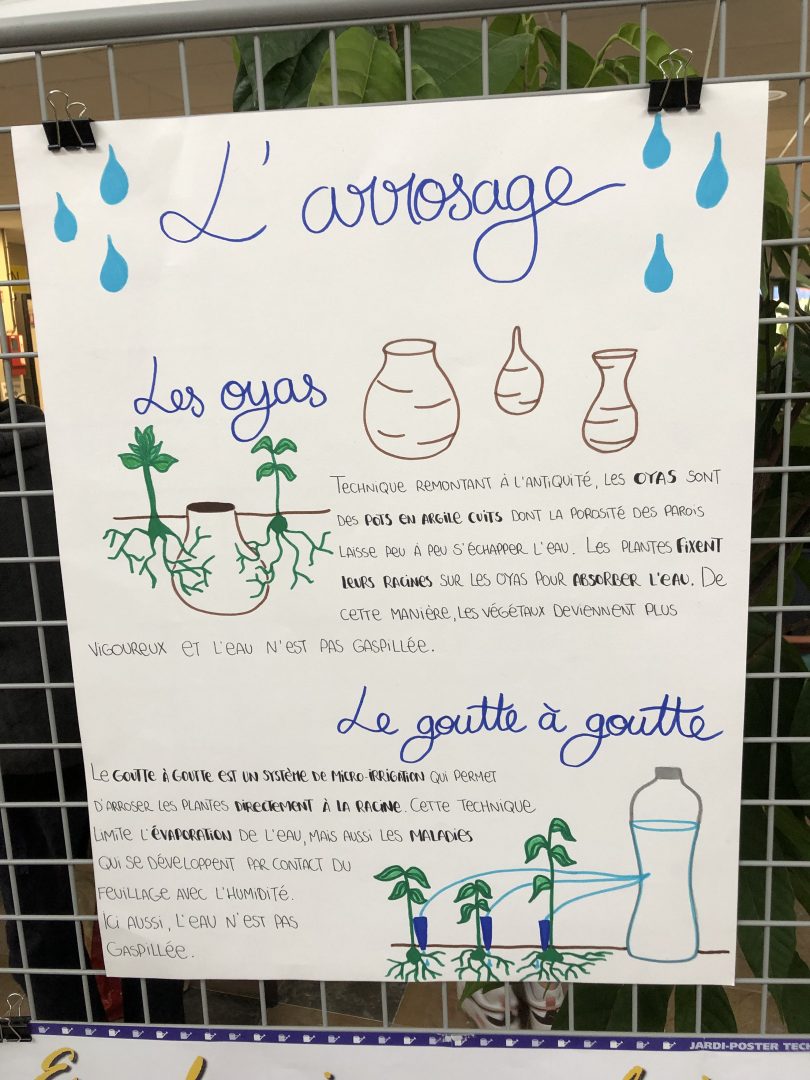 L'arrosage
Les oyas
Technique remontant à l'antiquité, les oyas sont
des pots en argile cuits dont la porosité des parois
laisse peu à peu s'échapper l'eau. Les plantes fixent
leurs racines sur les oyas pour absorber l'eau. De
cette manière, les végétaux deviennent plus
vigoureux et l'eau n'est pas gaspillée.
Le goutte à goutte
Le goutte à goutte est un système de micro-irrigation qui permet
d'arroser les plantes directement à la racine. Cette technique
limite l'évaporation de l'eau, mais aussi les maladies
qui se développent par contact du
feuillage avec l'humidité.
Ici aussi, l'eau n'est pas
gaspillée.
JARDI-POSTER TECH